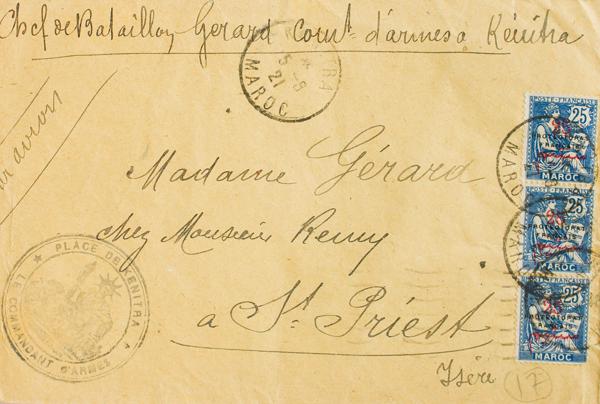 Chef de Bataillon Gerard Com^t d'armes a Kénitra
par avion
KENITRA
5-8
21
MAROC
POSTE FRANÇAISE
25
PROTECTORAT
FRANÇAIS
MAROC
POSTE FRANÇAISE
25
PROTECTORAT
FRANÇAIS
MAROC
POSTE FRANÇAISE
25
PROTECTORAT
FRANÇAIS
MAROC
MAROC
MAROC
Madame Gérard
chez Monsieur Remy
a St. Priest
Isère
17
PLACE DE KENITRA
LE COMMANDANT D'ARMES